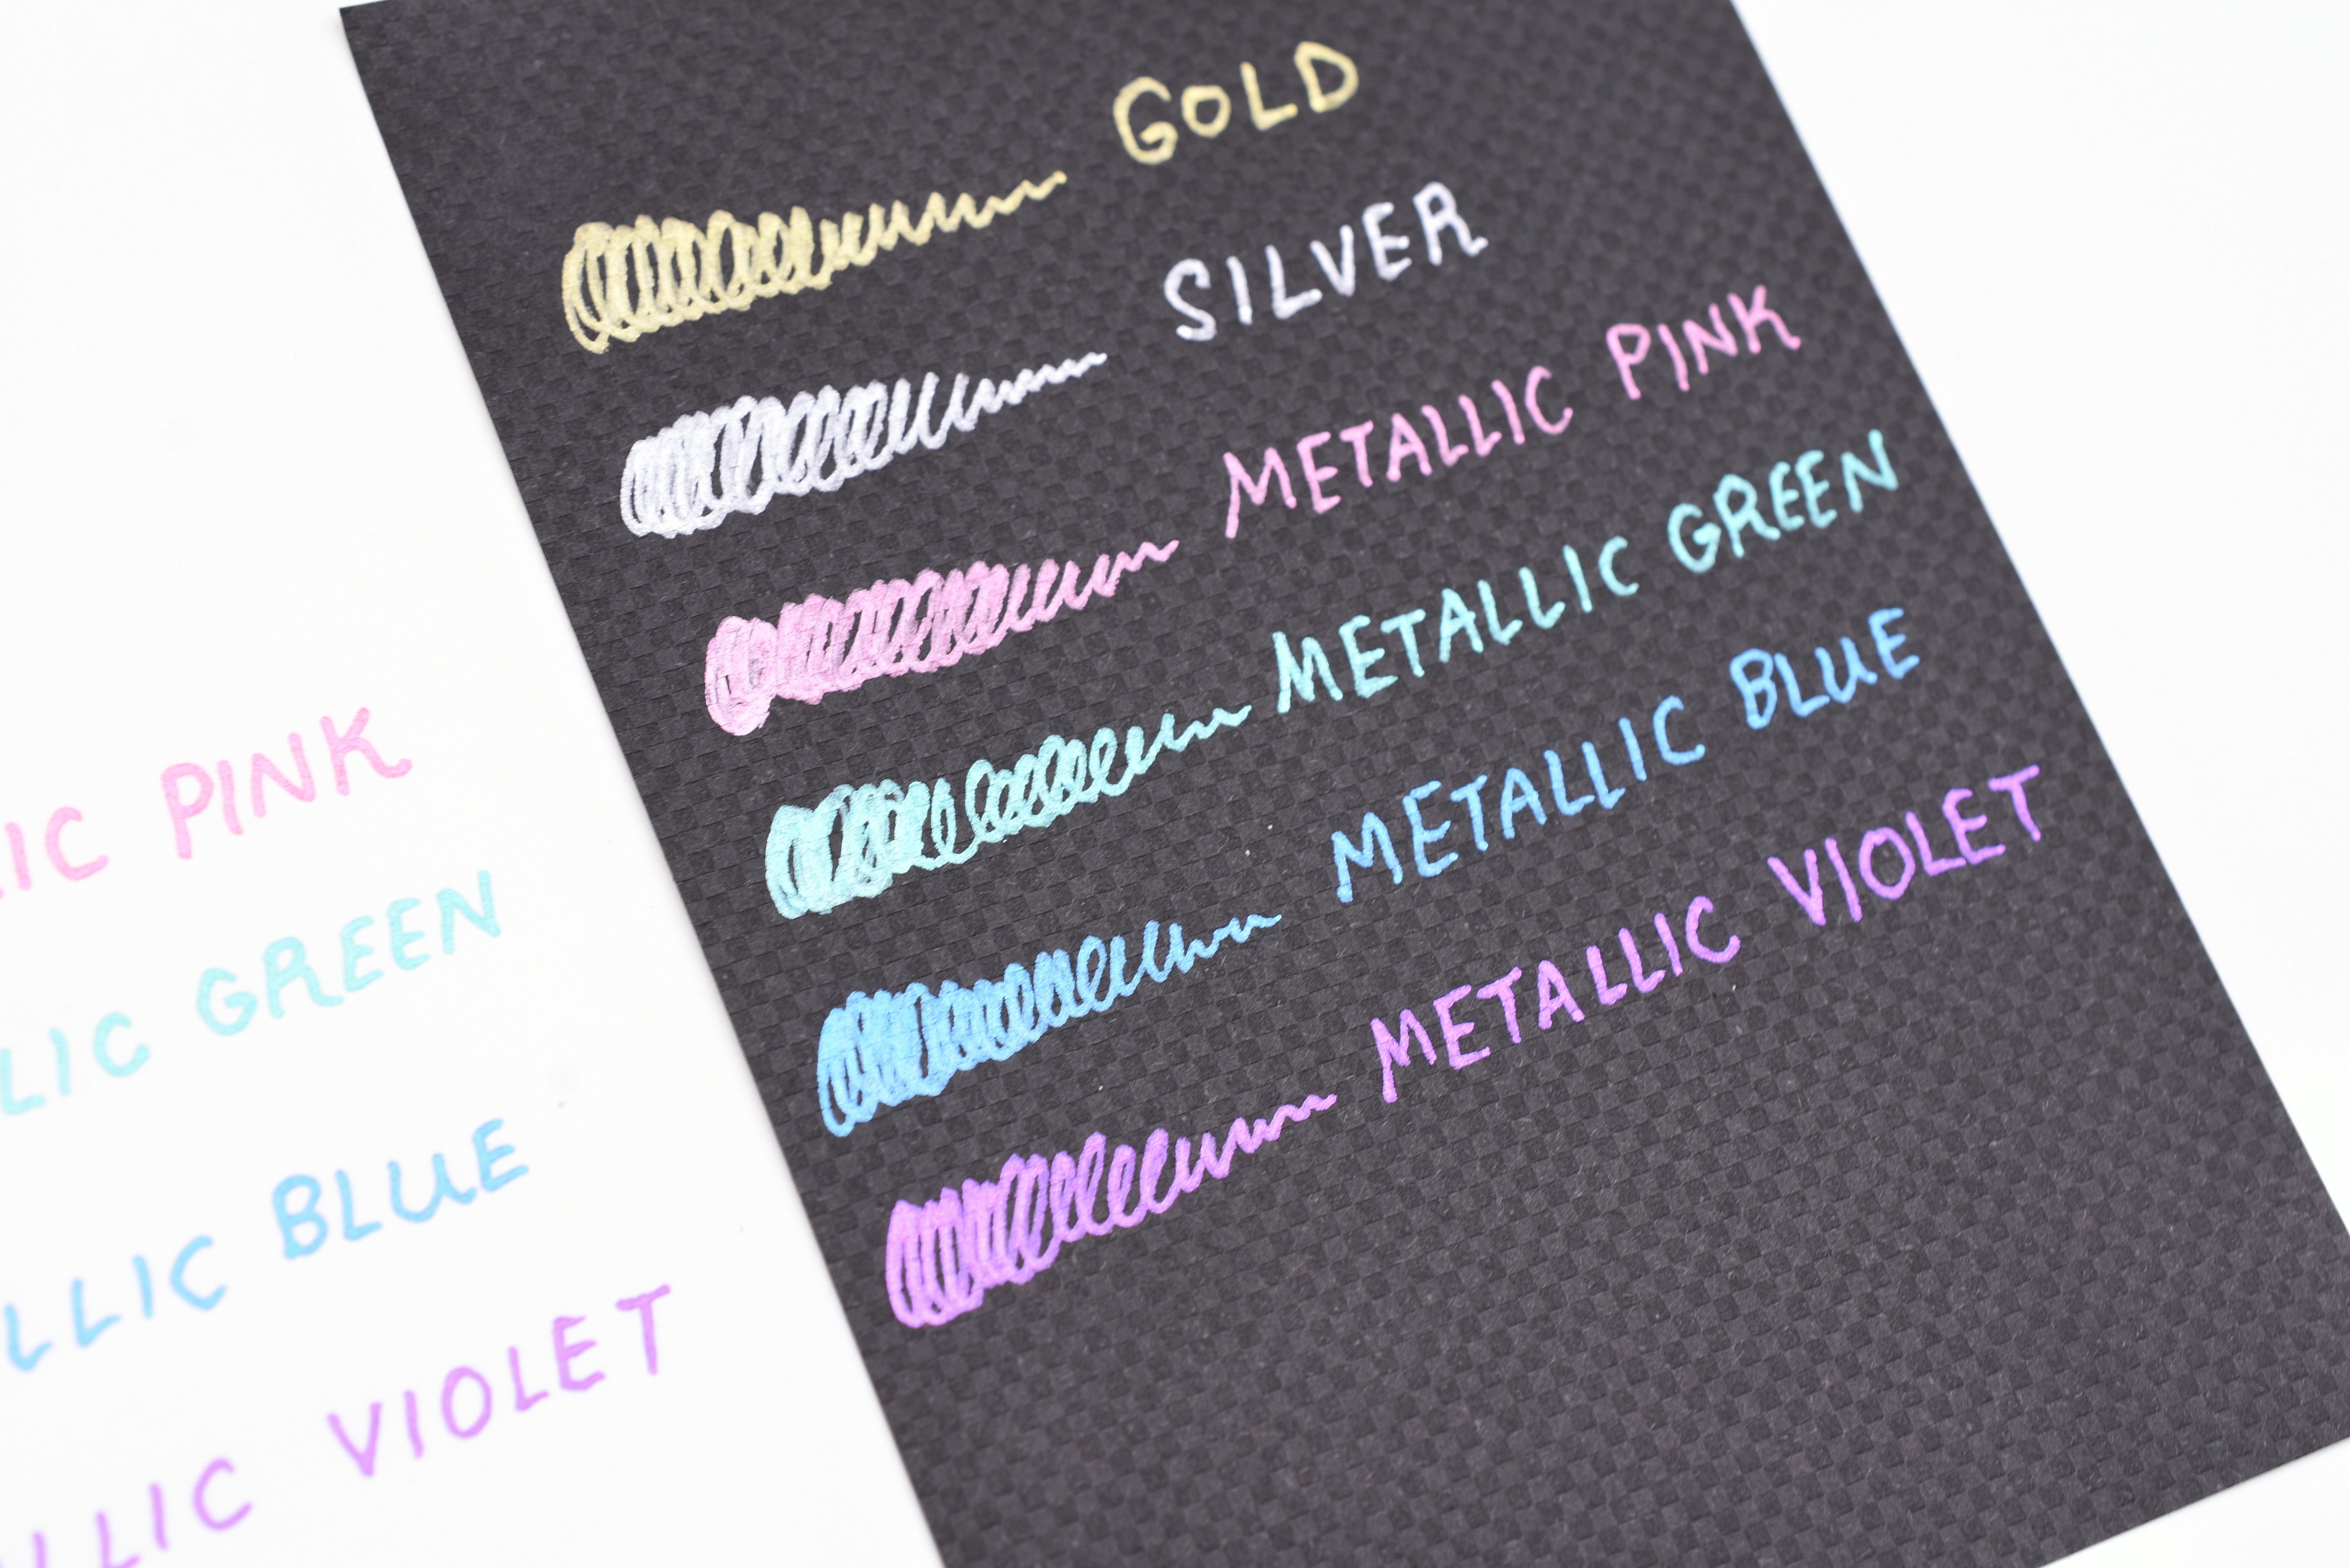 GOLD
SILVER
METALLIC PINK
METALLIC GREEN
METALLIC BLUE
METALLIC VIOLET
LIC PINK
LIC GREEN
LLIC BLUE
LLIC VIOLET